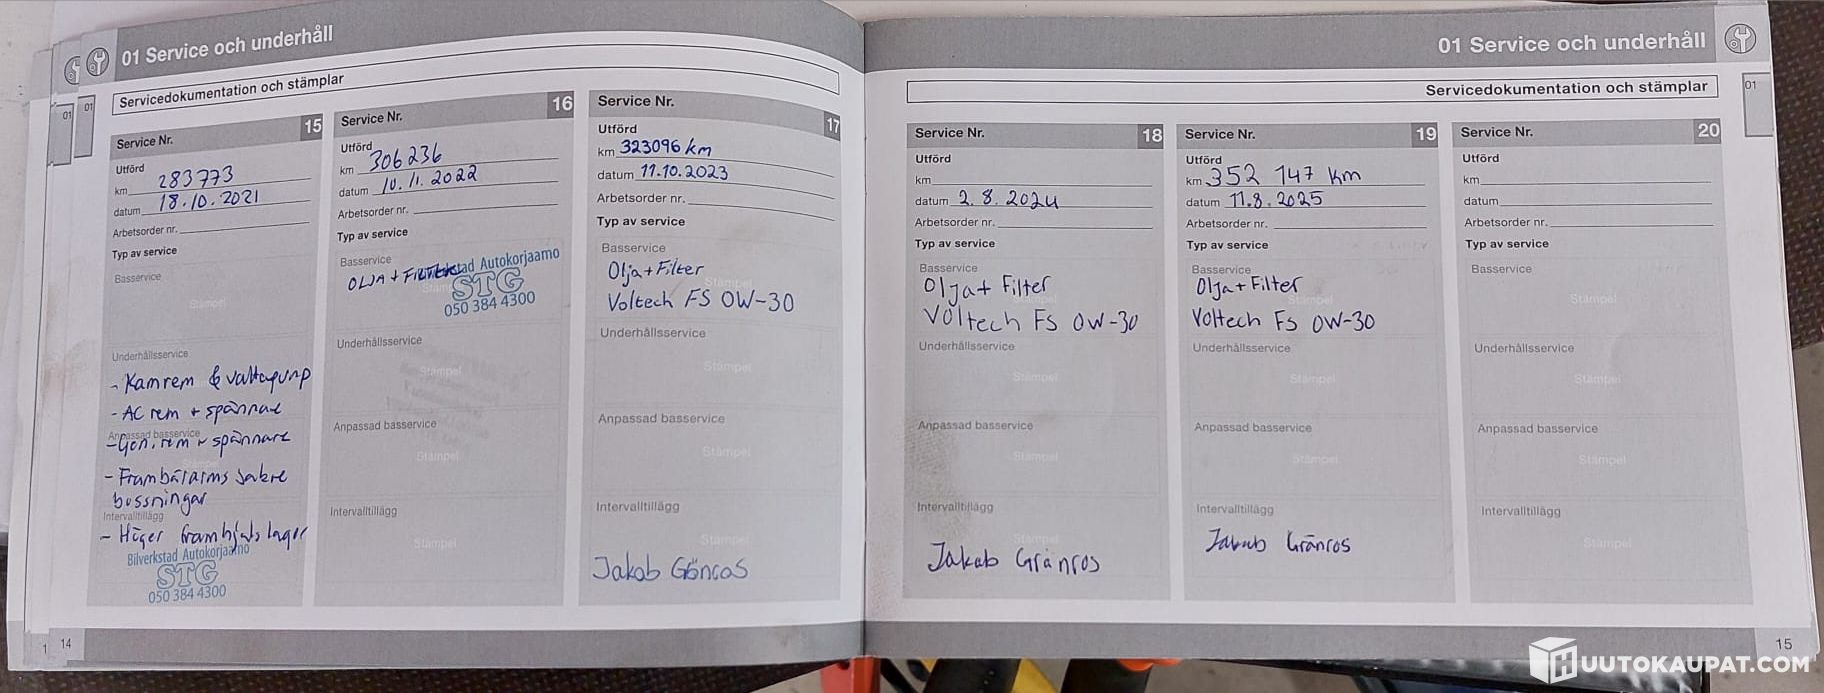 01 Service och underhåll
Servicedokumentation och stämplar
01
01
Service Nr. 15
Utförd
km 283773
datum 18.10.2021
Arbetsorder nr.
Typ av service
Basservice
Stämpel
Underhållsservice
- Kamrem &
- AC rem + spännare
Anpassad basservice
- Gen. rem + spännare
- Frambärarms
bussningar
Intervalltillägg
- Höger framhjuls lager
Bilverkstad Autokorjaamo
STG
050 384 4300
Service Nr. 16
Utförd
km 306236
datum 10.11.2022
Arbetsorder nr.
Typ av service
Basservice
OLJA + Filter
Autokorjaamo
STG
050 384 4300
Underhållsservice
Stämpel
Anpassad basservice
Stämpel
Intervalltillägg
Stämpel
Service Nr. 17
Utförd
km 323096 km
datum 11.10.2023
Arbetsorder nr.
Typ av service
Basservice
Olja + Filter
Stämpel
Voltech FS 0W-30
Underhållsservice
Stämpel
Anpassad basservice
Stämpel
Intervalltillägg
Stämpel
Jakob
1 14
01 Service och underhåll
Servicedokumentation och stämplar
01
Service Nr. 18
Utförd
km
datum 2.8.2024
Arbetsorder nr.
Typ av service
Basservice
Olja + Filter
Stämpel
Voltech FS 0W-30
Underhållsservice
Stämpel
Anpassad basservice
Stämpel
Intervalltillägg
Stämpel
Jakob Granros
Service Nr. 19
Utförd
km 352 147 km
datum 11.8.2025
Arbetsorder nr.
Typ av service
Basservice
Olja + Filter
Stämpel
Voltech FS 0W-30
Underhållsservice
Stämpel
Anpassad basservice
Stämpel
Intervalltillägg
Jakob Granros
Service Nr. 20
Utförd
km
datum
Arbetsorder nr.
Typ av service
Basservice
Stämpel
Underhållsservice
Stämpel
Anpassad basservice
Stämpel
Intervalltillägg
Stämpel
15
HUUTOKAUPAT.COM